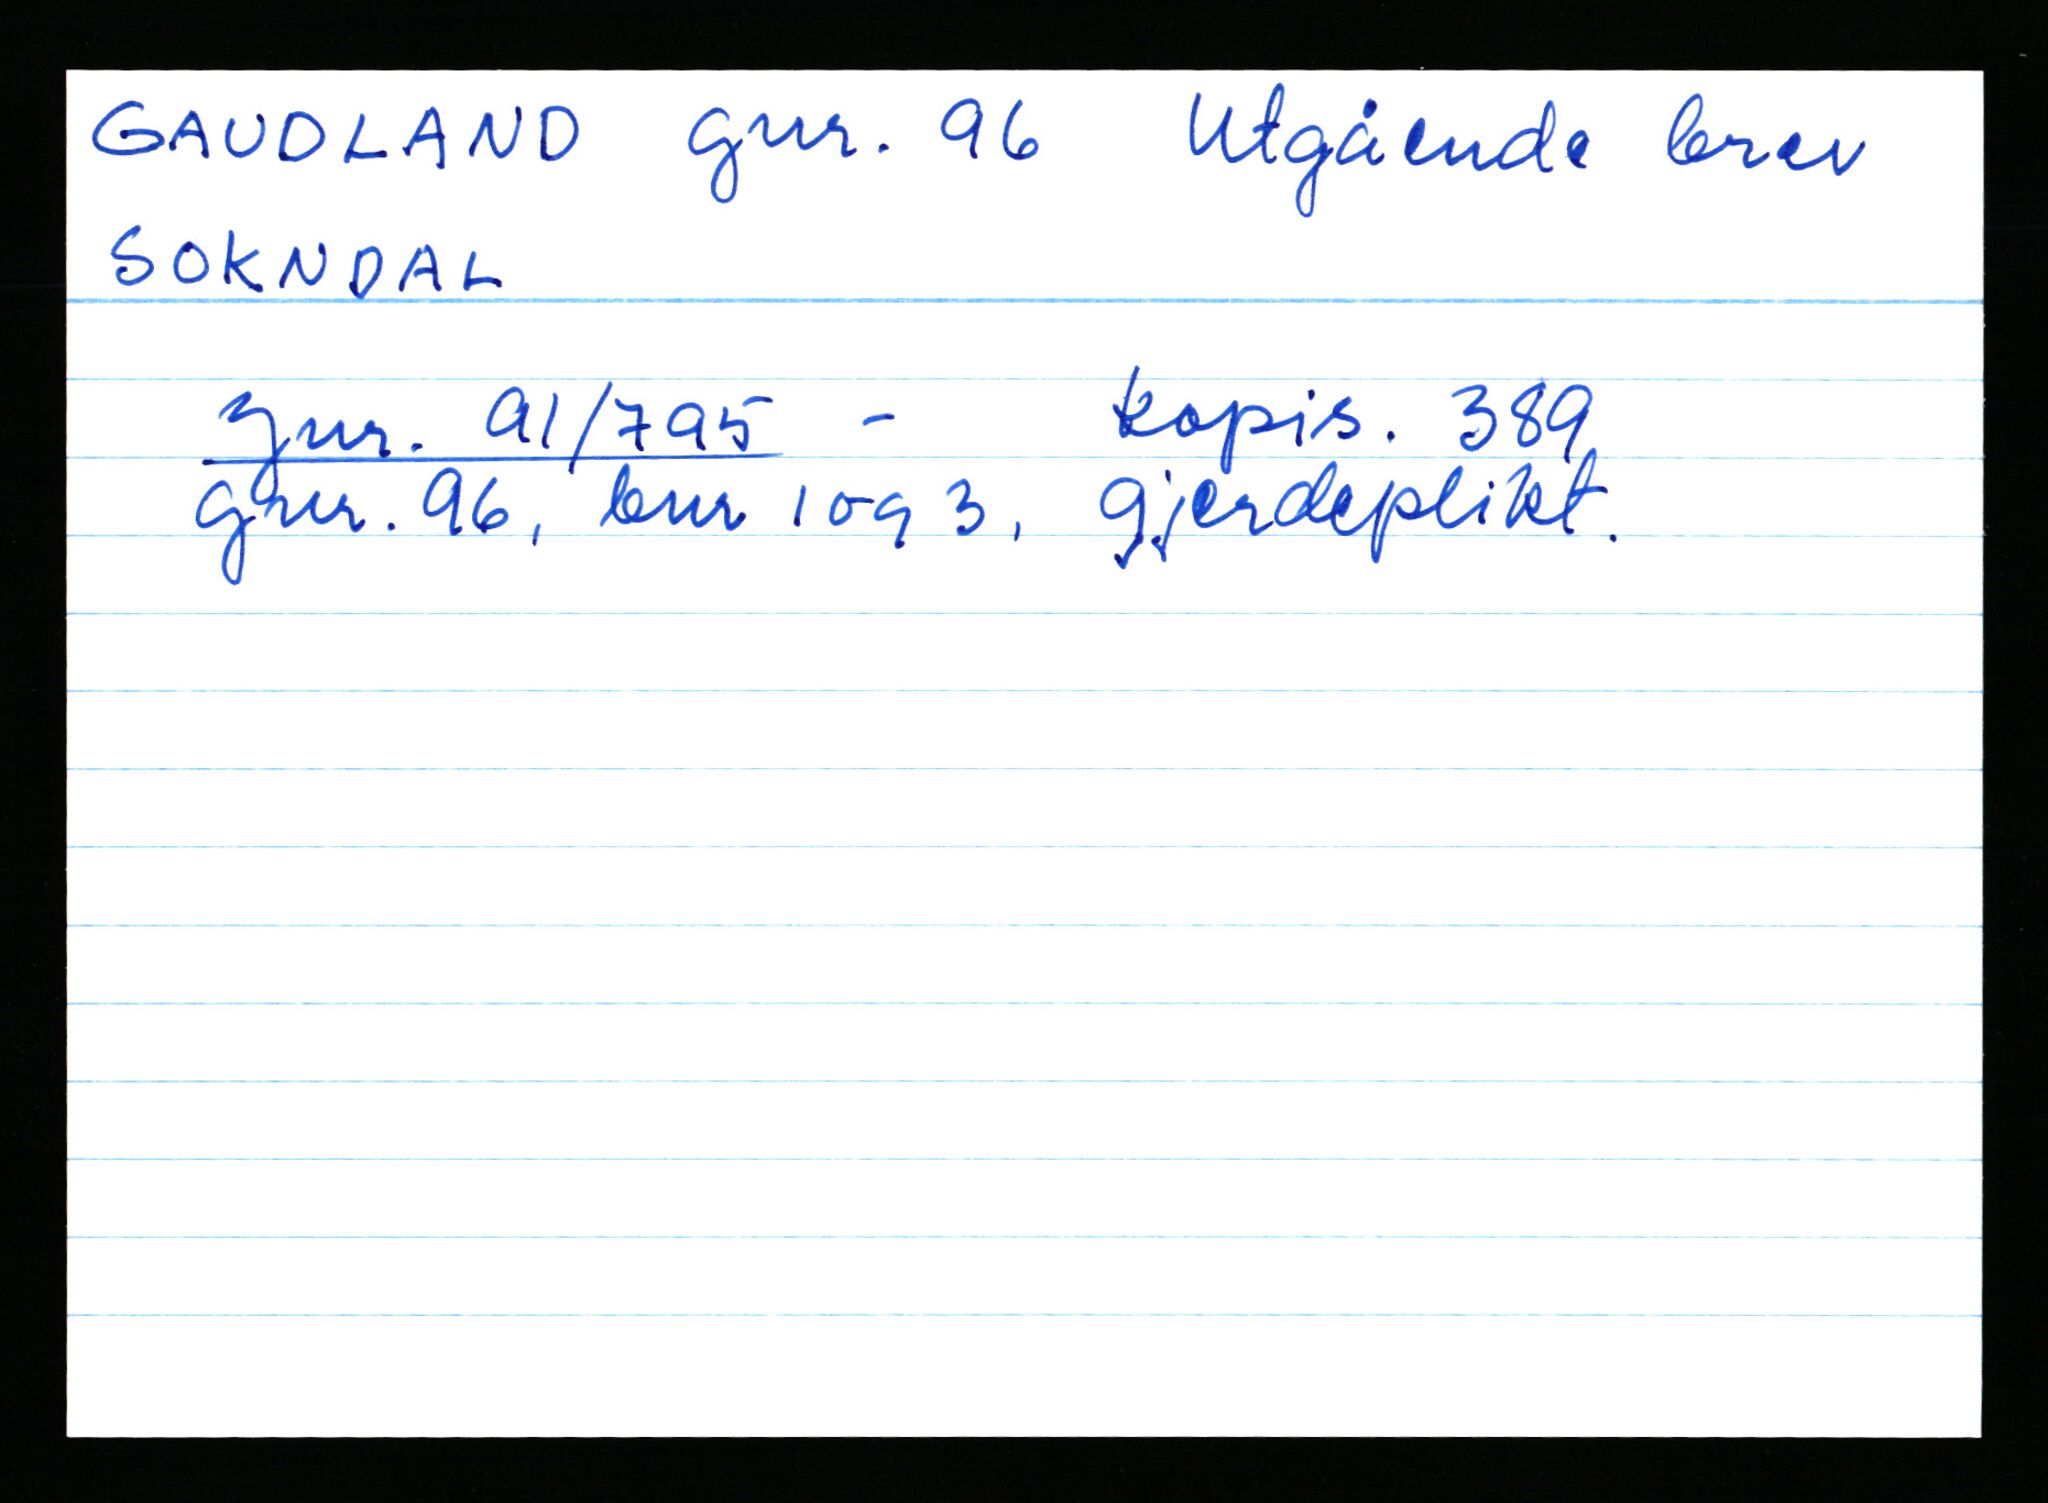 GAUDLAND gnr. 96 Utgående brev
SOKNDAL
gnr. 91/795 - kopis. 389
gnr. 96, bnr 1 og 3, gjerdeplikt.